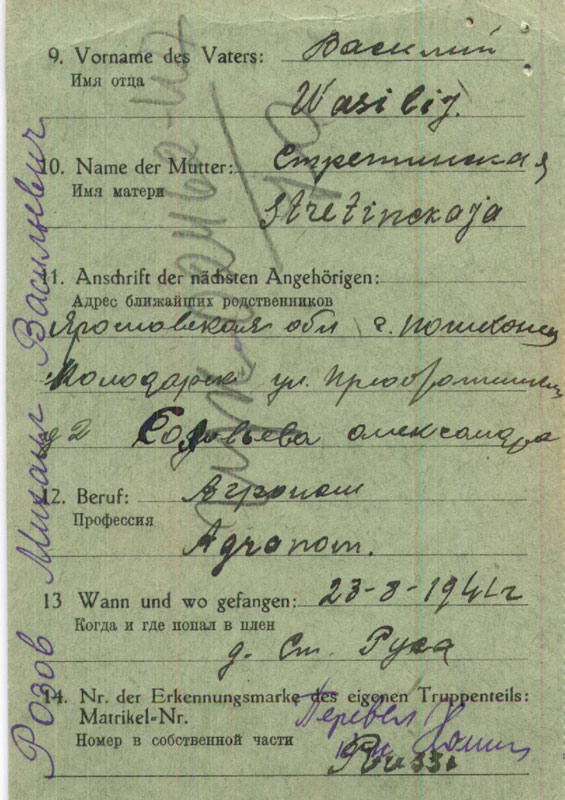 Розов Михаил Васильевич
9. Vorname des Vaters: Василий
Имя отца
Wasilij.
10. Name der Mutter: Стретинская
Имя матери
Stretinskaja
11. Anschrift der nächsten Angehörigen:
Адрес ближайших родственников
Ярославская обл г.
ул.
д 2 Соловьева александра
12. Beruf: Агроном
Профессия
Agronom.
13 Wann und wo gefangen: 23-8-1941г
Когда и где попал в плен
д. Ст. Руса
14. Nr. der Erkennungsmarke des eigenen Truppenteils:
Matrikel-Nr.
Номер в собственной части
Перевел